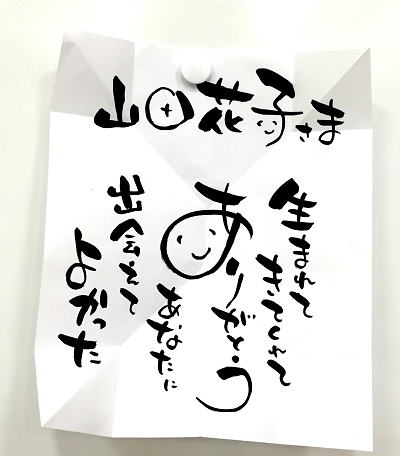 山田花子さま
生まれて
きてくれて
ありがとう
あなたに
出会えて
よかった